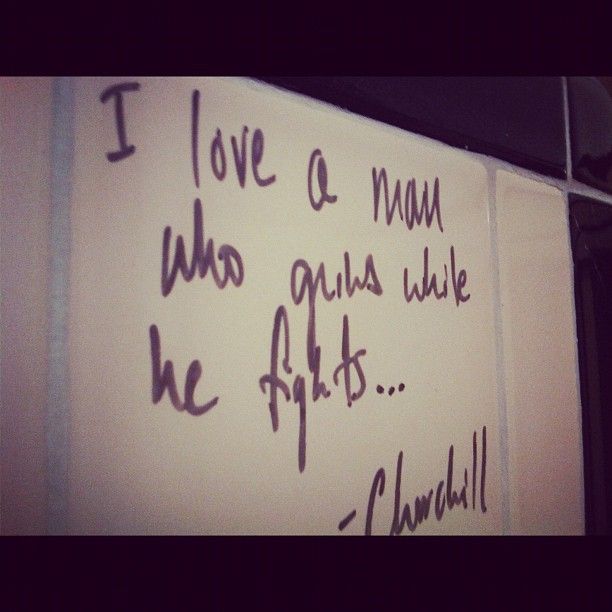 I love a man
who grins while
he fights...
- Churchill